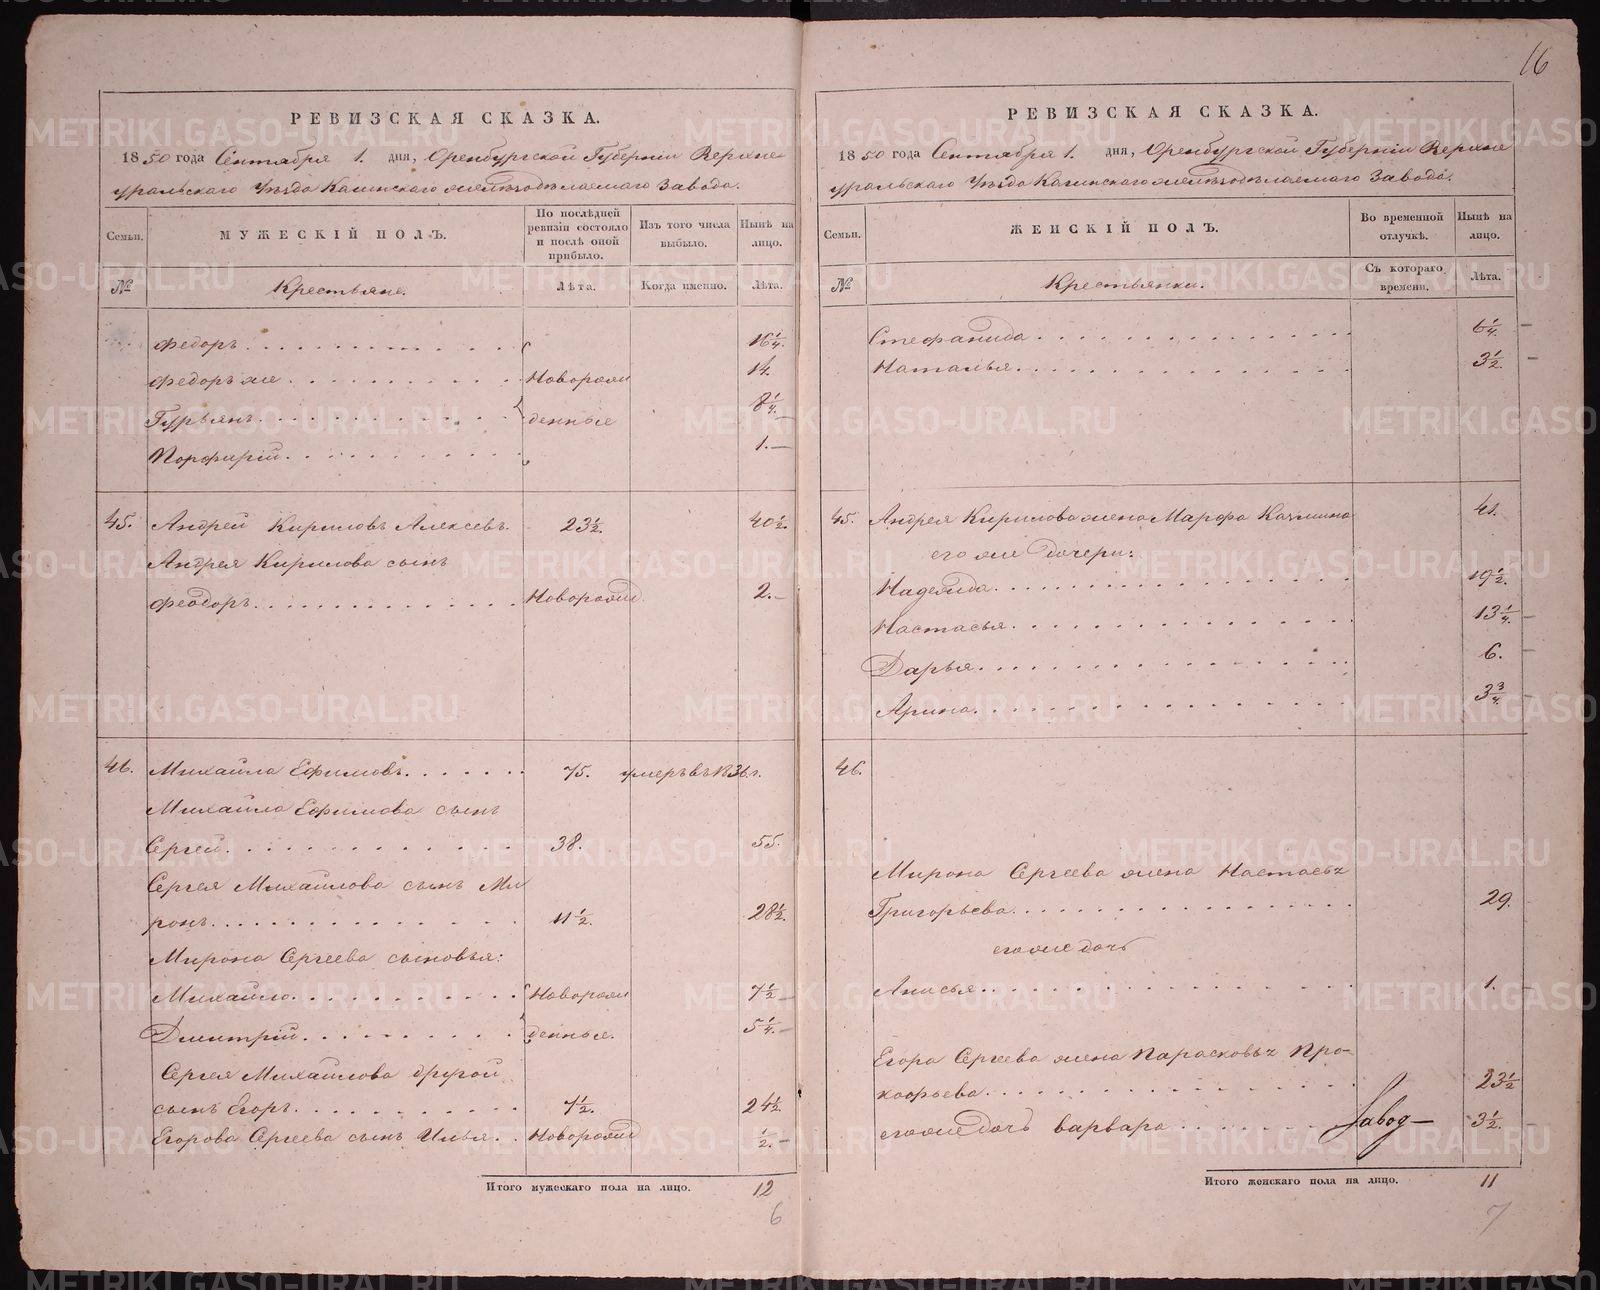 16
РЕВИЗСКАЯ СКАЗКА.
1850 года Сентября 1. дня, Оренбургской Губерніи Верхне
уральскаго Уѣзда Кагинскаго желѣзодѣлаемаго Завода.
Семьи.
МУЖЕСКІЙ ПОЛЪ.
По послѣдней ревизіи состояло и послѣ оной прибыло.
Изъ того числа выбыло.
Нынѣ на лицо.
№
Крестьяне.
Лѣта.
Когда именно.
Лѣта.
Федоръ 16 1/4.
Федоръ же Новорож 14.
Гурьянъ денные 8 1/4.
Порфирій 1.
45. Андрей Кириловъ Алексеевъ. 23 1/2. 40 1/2.
Андрея Кирилова сынъ
Феодоръ Новорожд. 2.
46. Михайло Ефимовъ 75. умеръ въ 1836 г.
Михайла Ефимова сынъ
Сергей 38. 55.
Сергея Михайлова сынъ Ми
ронъ 11 1/2. 28 1/2.
Мирона Сергеева сыновья:
Михайло Новорож 7 1/2
Дмитрій денные. 5 1/4.
Сергея Михайлова другой
сынъ Егоръ 7 1/2. 24 1/2.
Егорова Сергеева сынъ Илья Новорожд 1/2.
Итого мужескаго пола на лицо. 12
6
РЕВИЗСКАЯ СКАЗКА.
1850 года Сентября 1. дня, Оренбургской Губерніи Верхне
уральскаго Уѣзда Кагинскаго желѣзодѣлаемаго Завода.
Семьи.
ЖЕНСКІЙ ПОЛЪ.
Во временной отлучкѣ.
Нынѣ на лицо.
№
Крестьянки.
Съ котораго времени.
Лѣта.
Стефанида 6 1/4.
Наталья 3 1/2.
45. Андрея Кирилова жена Марфа Казмина 41.
его же дочери:
Надежда 19 1/2.
Настасья 13 1/4.
Дарья 6.
Арина 3 3/4.
46.
Мирона Сергеева жена Настасья
Григорьева 29.
его же дочь
Анисья 1.
Егора Сергеева жена Парасковья Про-
кофьева 23 1/2
его же дочь Варвара Завод 3 1/2.
Итого женскаго пола на лицо. 11
7
METRIKI.GASO-URAL.RU